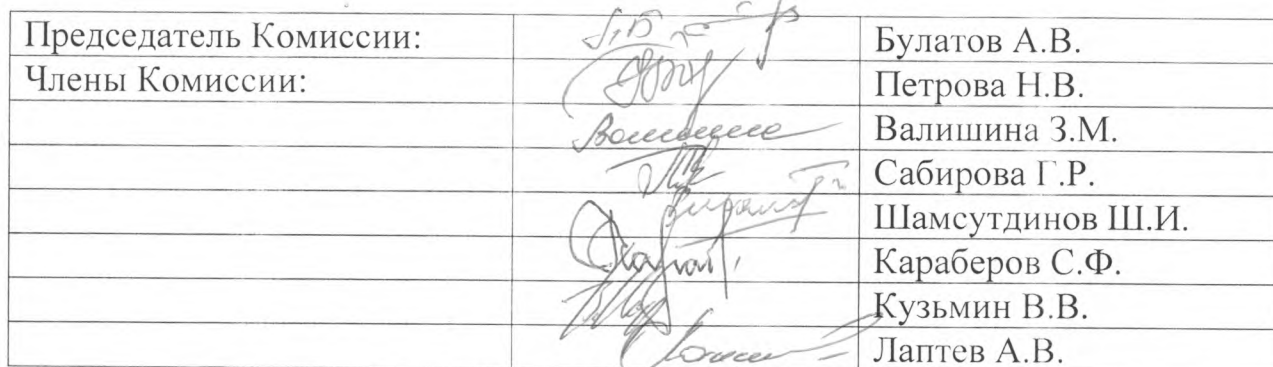 Председатель Комиссии: Булатов А.В.
Члены Комиссии: Петрова Н.В.
Валишина З.М.
Сабирова Г.Р.
Шамсутдинов Ш.И.
Караберов С.Ф.
Кузьмин В.В.
Лаптев А.В.